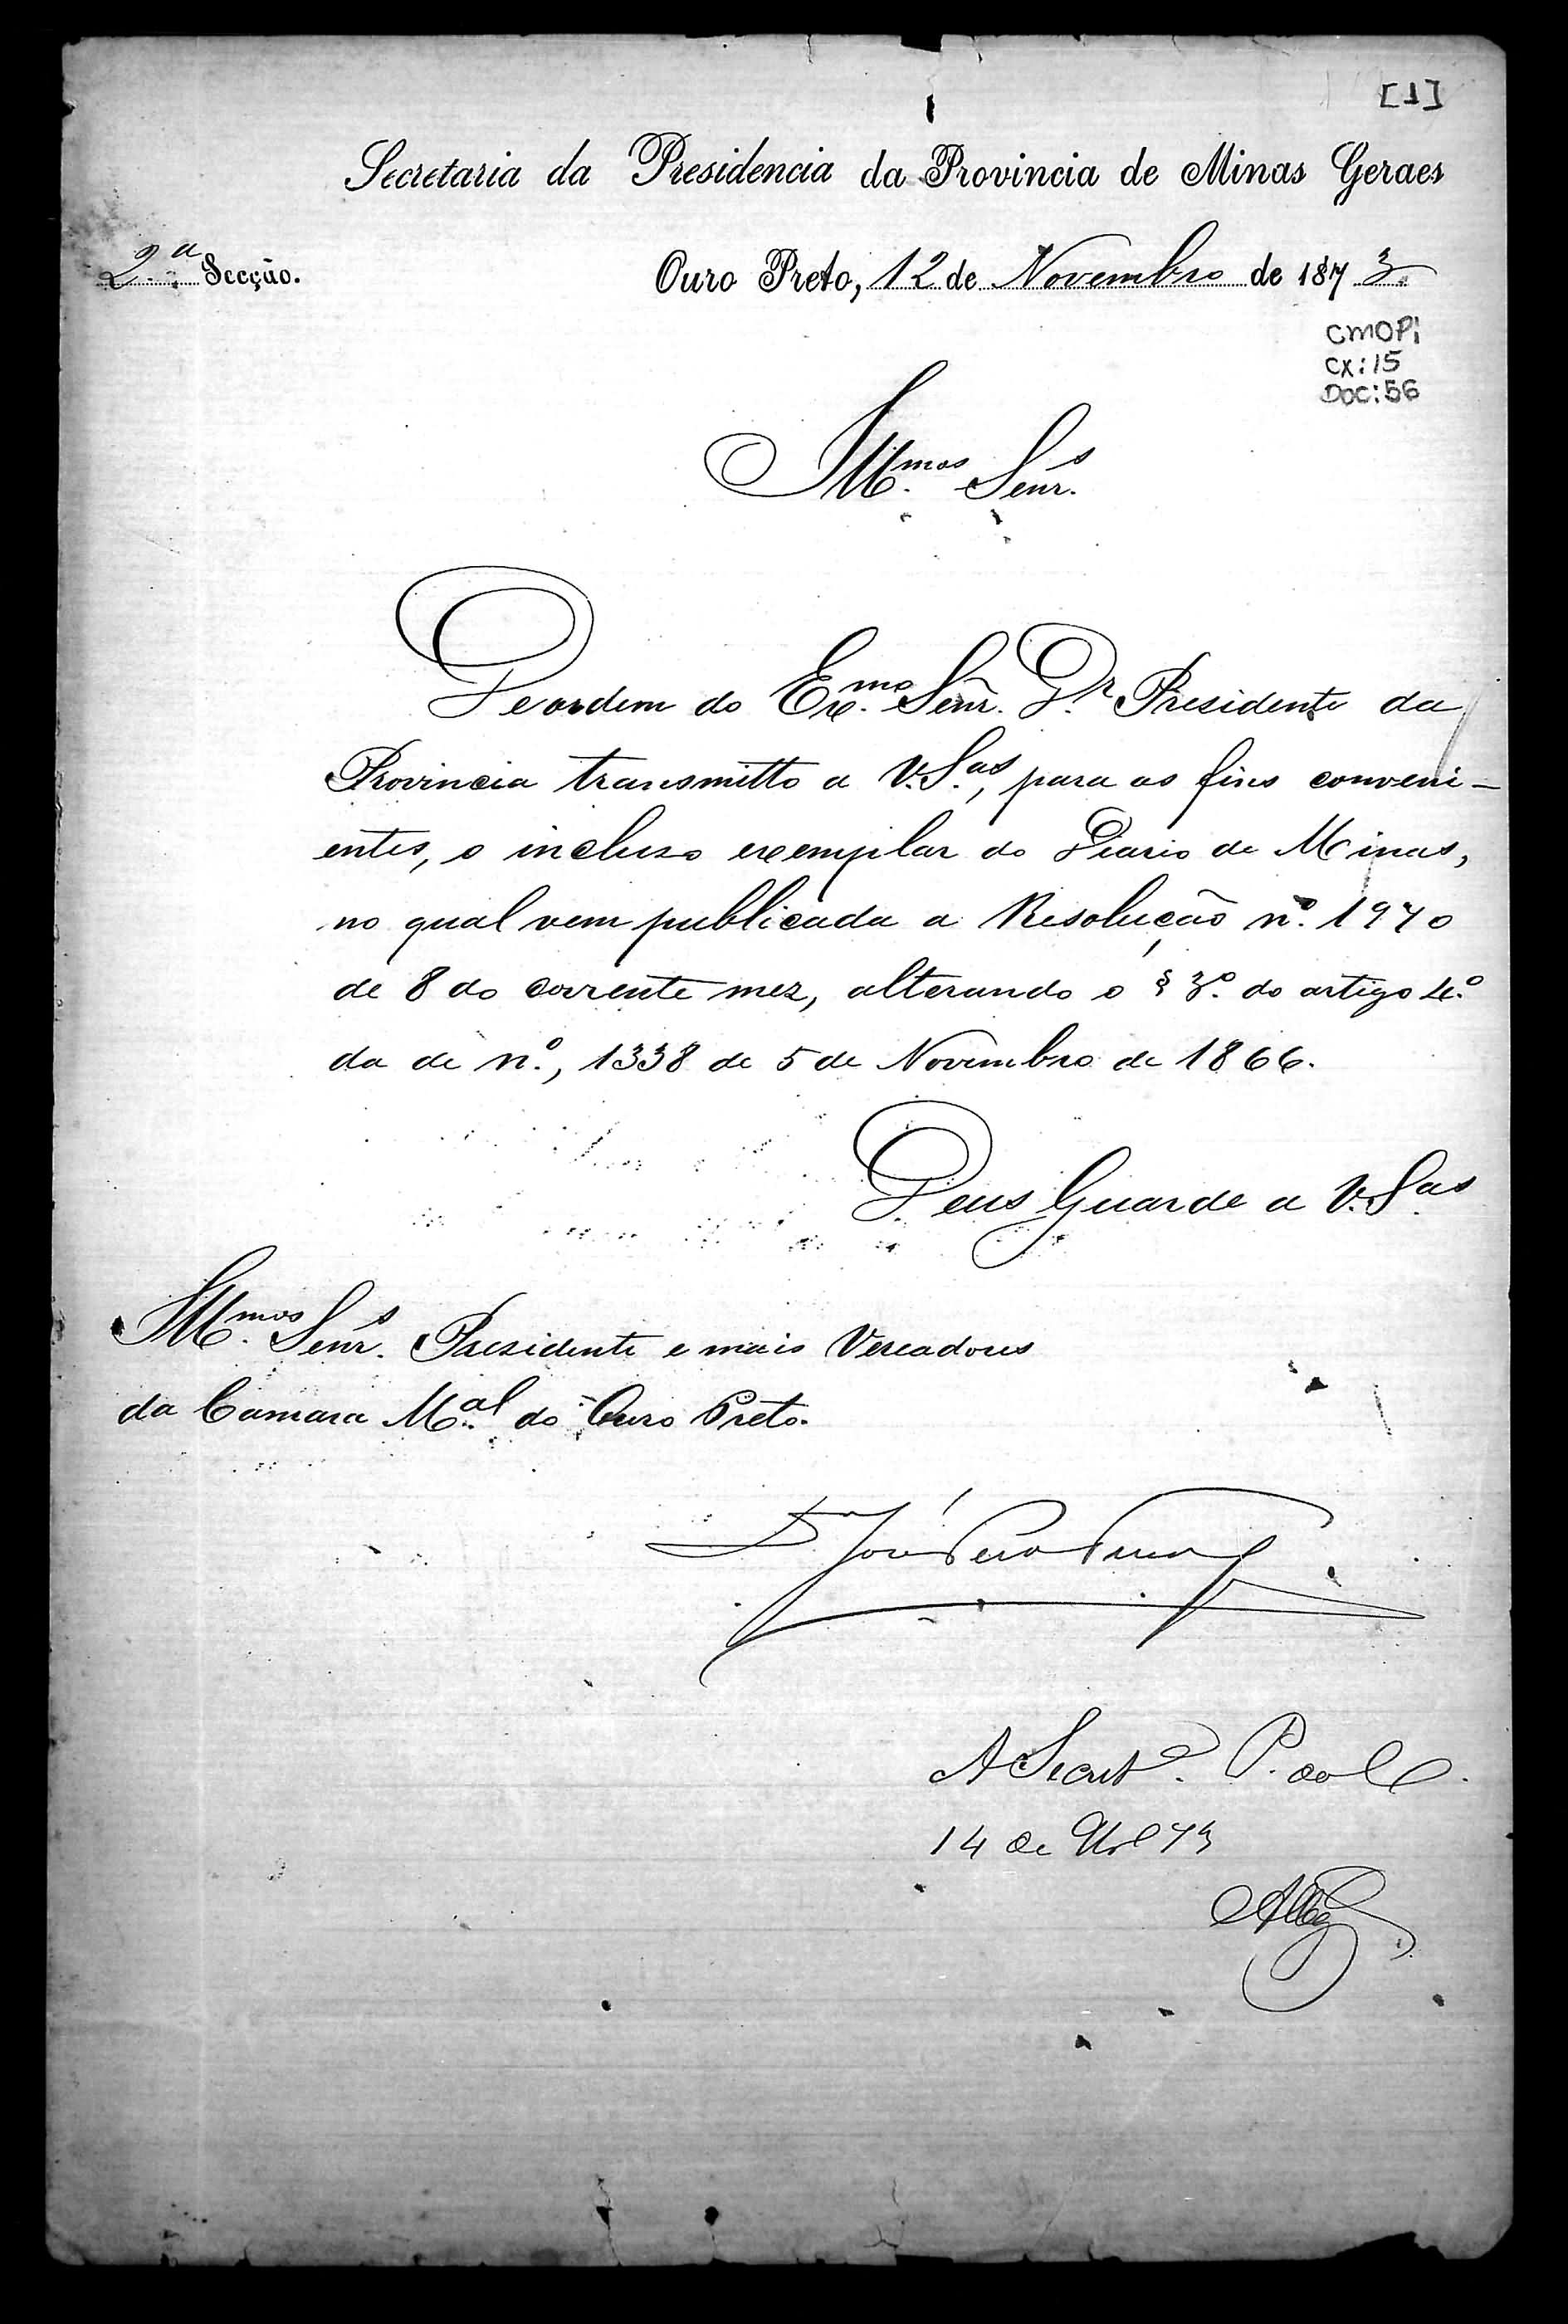 [1]
Secretaria da Presidencia da Provincia de Minas Geraes
2.ª Secção.
Ouro Preto, 12 de Novembro de 1873.
CMOP
CX:15
DOC:56
Illmos. Senrs.
De ordem do Exmo. Senr. Dr. Presidente da
Provincia transmitto a V.Sas., para os fins conveni-
entes, o incluso exemplar do Diario de Minas,
no qual vem publicada a Resolução nº. 1970
de 8 do corrente mez, alterando o § 3º. do artigo 4.º
da de nº., 1338 de 5 de Novembro de 1866.
Deus Guarde a V.Sas
Illmos. Senrs. Presidente e mais Vereadores
da Camara Mal. do Ouro Preto.
A Secret.
14 de 73